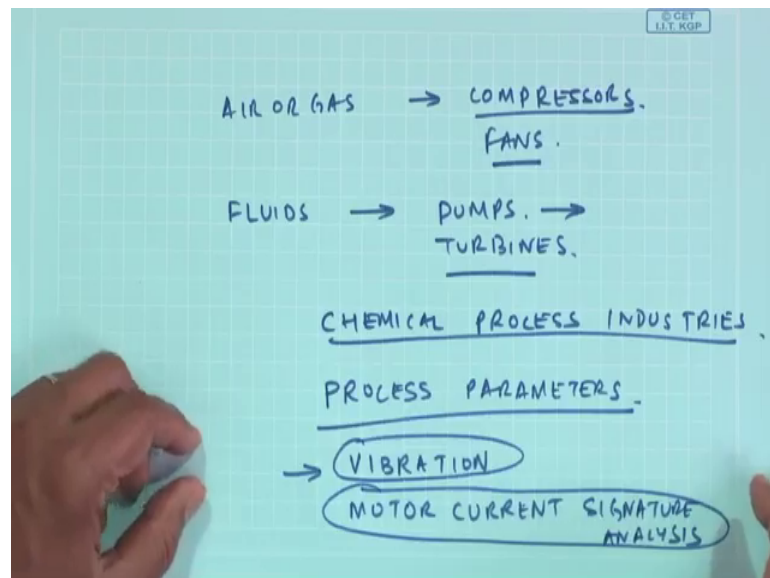 © CET
I.I.T. KGP
AIR OR GAS → COMPRESSORS.
FANS.
FLUIDS → PUMPS. →
TURBINES.
CHEMICAL PROCESS INDUSTRIES.
PROCESS PARAMETERS.
→ VIBRATION
MOTOR CURRENT SIGNATURE
ANALYSIS